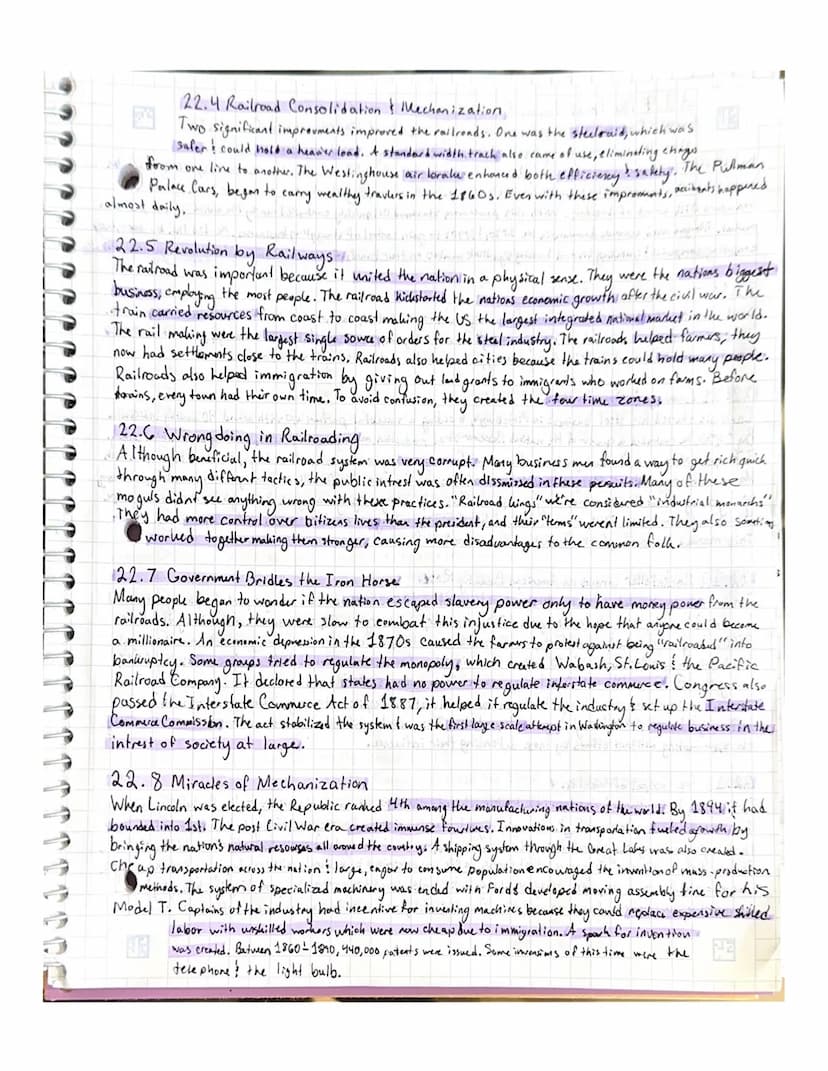 22.4 Railroad Consolidation & Mechanization
Two significant improvments improved the railroads. One was the steelraid, which was
safer & could hold a heavier load. A standard width track also came of use, eliminating chages
from one line to another. The Westinghouse air brake enhanced both efficiency & safety. The Pullman
Palace Cars, began to carry wealthy travlers in the 1860s. Even with these improments, accidents happened
almost daily.
22.5 Revolution by Railways
The railroad was important because it united the nation in a physical sense. They were the nations biggest
business, employing the most people. The railroad kickstarted the nations economic growth after the civil war. The
train carried resources from coast to coast making the US the largest integrated national market in the world.
The rail making were the largest single source of orders for the steal industry. The railroads helped farmers, they
now had settlments close to the trains. Railroads also helped cities because the trains could hold many people.
Railroads also helped immigration by giving out land grants to immigrants who worked on farms. Before
trains, every town had their own time. To avoid confusion, they created the four time zones.
22.6 Wrongdoing in Railroading
Although beneficial, the railroad system was very corrupt. Many business men found a way to get rich quick
through many different tactics, the public intrest was often dissmissed in these persuits. Many of these
moguls didnt see anything wrong with these practices. "Railroad kings" we're considered "industrial monarchs"
They had more control over bitizens lives than the president, and their "terms" werent limited. They also sometims
worked together making them stronger, causing more disadvantages to the common folk.
22.7 Government Bridles the Iron Horse
Many people began to wonder if the nation escaped slavery power only to have money power from the
railroads. Although, they were slow to combat this injustice due to the hope that anyone could become
a millionaire. An economic depression in the 1870s caused the farmers to protest against being "railroaded" into
bankruptcy. Some groups tried to regulate the monopoly, which created Wabash, St. Louis & the Pacific
Railroad Company. It declared that states had no power to regulate interstate commerce. Congress also
passed the Interstate Commerce Act of 1887, it helped it regulate the industry & set up the Interstate
Commerce Commission. The act stabilized the system & was the first large scale attempt in Washington to regulate business in the
intrest of society at large.
22.8 Miracles of Mechanization
When Lincoln was elected, the Republic ranked 4th among the manufacturing nations of the world. By 1894 it had
bounded into 1st. The post Civil War era created immense fourtunes. Innovations in transportation fueled growth by
bringing the nation's natural resourses all around the country. A shipping system through the Great Laks was also created.
Cheap transportation across the nation & large, eager to consume population encouraged the invention of mass-production
methods. The system of specialized machinery was ended with Fords developed moving assembly line for his
Model T. Captains of the industry had incentive for inventing machines because they could replace expensive skilled
labor with unskilled workers which were now cheap due to immigration. A spark for invention
was created. Between 1860-1890, 440,000 patents were issued. Some invensions of this time were the
telephone & the light bulb.